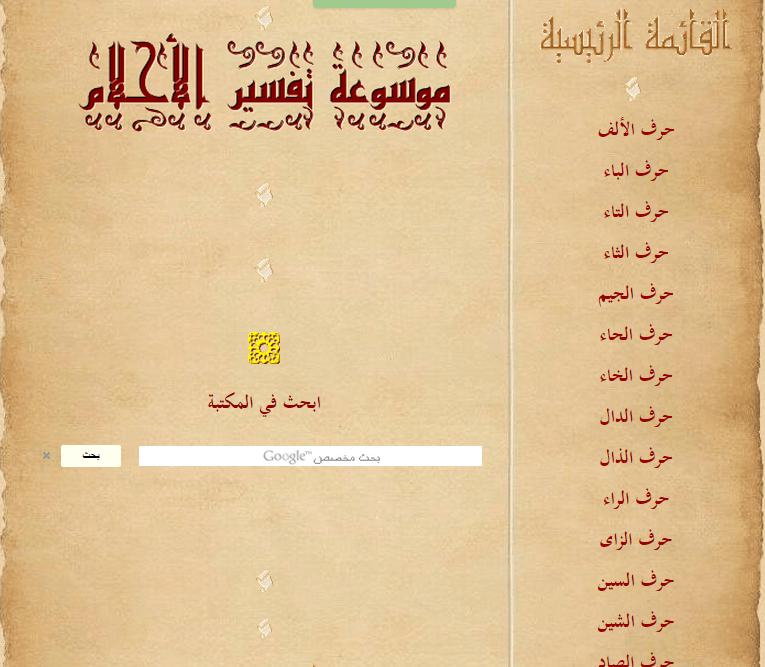 القائمة الرئيسية
حرف الألف
حرف الباء
حرف التاء
حرف الثاء
حرف الجيم
حرف الحاء
حرف الخاء
حرف الدال
حرف الذال
حرف الراء
حرف الزاى
حرف السين
حرف الشين
حرف الصاد
موسوعة تفسير الأحلام
ابحث في المكتبة
بحث مخصص Google™
بحث
×